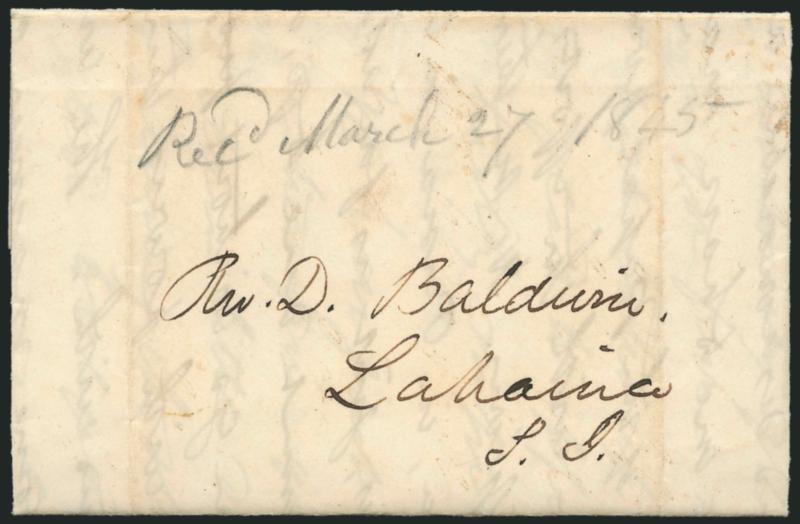 Rec'd March 27 1845
Rev. D. Baldwin.
Lahaina
S. I.